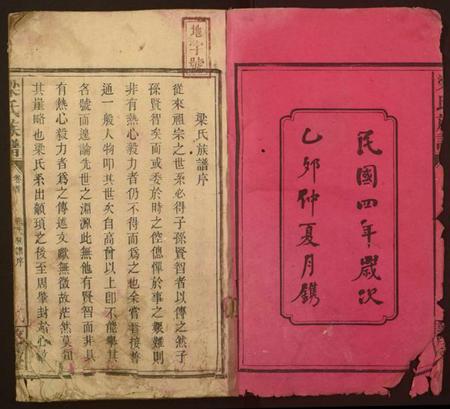 民國四年歲次
乙卯仲夏月鐫
梁氏族譜
地字號
梁氏族譜序
從來祖宗之世系必得子孫賢智者以傳之然子
孫賢智矣而或委於時之倥傯憚於事之艱難則
非有熱心毅力者仍不得而爲之也余嘗接普
通一般人物叩其世系自高曾以上即不能舉其
名號而遑論先世之淵源此無他有賢智而非具
有熱心毅力者爲之傳述文獻無徵故茫然莫
其崖略也梁氏系出顓頊之後至周畢封
梁氏族譜